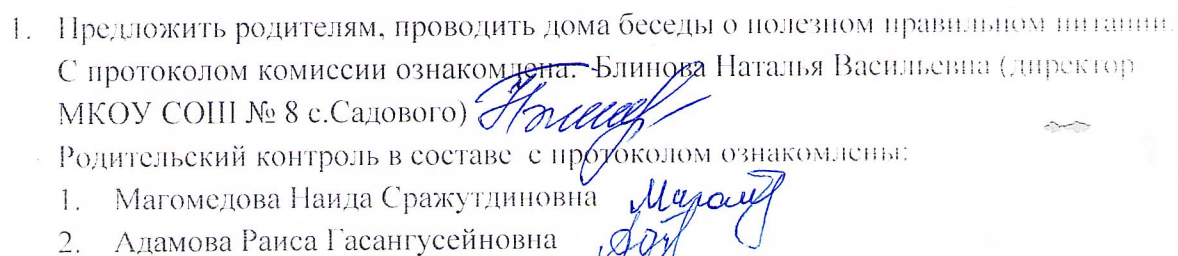 1. Предложить родителям, проводить дома беседы о полезном правильном питании.
С протоколом комиссии ознакомлена: Блинова Наталья Васильевна (директор
МКОУ СОШ № 8 с.Садового)
Родительский контроль в составе с протоколом ознакомлены:
1. Магомедова Наида Сражутдиновна
2. Адамова Раиса Гасангусейновна